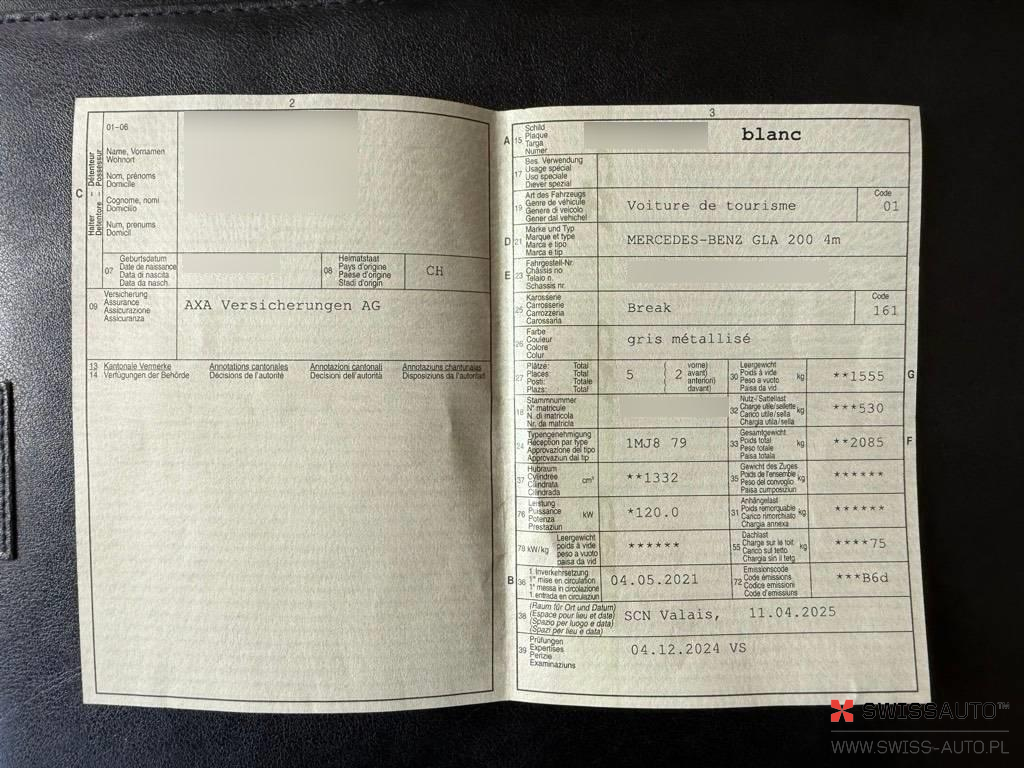 2
01–06
Name, Vornamen
Wohnort
Nom, prénoms
Domicile
Cognome, nomi
Domicilio
Num, prenums
Domicil
C
Halter – Détenteur
Detentore – Possessur
07
Geburtsdatum
Date de naissance
Data di nascita
Data da nasch.
08
Heimatstaat
Pays d'origine
Paese d'origine
Stadi d'origin
CH
09
Versicherung
Assurance
Assicurazione
Assicuranza
AXA Versicherungen AG
13 Kantonale Vermerke Annotations cantonales Annotazioni cantonali Annotaziuns chantunalas
14 Verfügungen der Behörde Décisions de l'autorité Decisioni dell'autorità Disposiziuns da l'autoritad
3
A 15
Schild
Plaque
Targa
Numer
blanc
17
Bes. Verwendung
Usage spécial
Uso speciale
Diever spezial
19
Art des Fahrzeugs
Genre de véhicule
Genere di veicolo
Gener dal vehichel
Voiture de tourisme
Code
01
D 21
Marke und Typ
Marque et type
Marca e tipo
Marca e tip
MERCEDES-BENZ GLA 200 4m
E 23
Fahrgestell-Nr.
Châssis no
Telaio n.
Schassis nr.
25
Karosserie
Carrosserie
Carrozzeria
Carossaria
Break
Code
161
26
Farbe
Couleur
Colore
Colur
gris métallisé
27
Plätze: Total
Places: Total
Posti: Totale
Plazs: Total
5
2
vorne)
avant)
anteriori)
davant)
30
Leergewicht
Poids à vide
Peso a vuoto
Paisa da vid
kg
**1555
G
18
Stammnummer
N° matricule
N. di matricola
Nr. da matricla
32
Nutz-/Sattellast
Charge utile/sellette
Carico utile/sella
Chargia utila/sella
kg
***530
24
Typengenehmigung
Réception par type
Approvazione del tipo
Approvaziun dal tip
1MJ8 79
33
Gesamtgewicht
Poids total
Peso totale
Paisa totala
kg
**2085
F
37
Hubraum
Cylindrée
Cilindrata
Cilindrada
cm³
**1332
35
Gewicht des Zuges
Poids de l'ensemble
Peso del convoglio
Paisa cumposiziun
kg
******
76
Leistung
Puissance
Potenza
Prestaziun
kW
*120.0
31
Anhängelast
Poids remorquable
Carico rimorchiato
Chargia annexa
kg
******
78 kW/kg
Leergewicht
poids à vide
peso a vuoto
paisa da vid
******
55
Dachlast
Charge sur le toit
Carico sul tetto
Chargia sin il tetg
kg
****75
B 36
1. Inverkehrsetzung
1re mise en circulation
1a messa in circolazione
1. entrada en circulaziun
04.05.2021
72
Emissionscode
Code émissions
Codice emissioni
Code d'emissiuns
***B6d
38
(Raum für Ort und Datum)
(Espace pour lieu et date)
(Spazio per luogo e data)
(Spazi per lieu e data)
SCN Valais, 11.04.2025
39
Prüfungen
Expertises
Perizie
Examinaziuns
04.12.2024 VS
SWISSAUTO™
WWW.SWISS-AUTO.PL